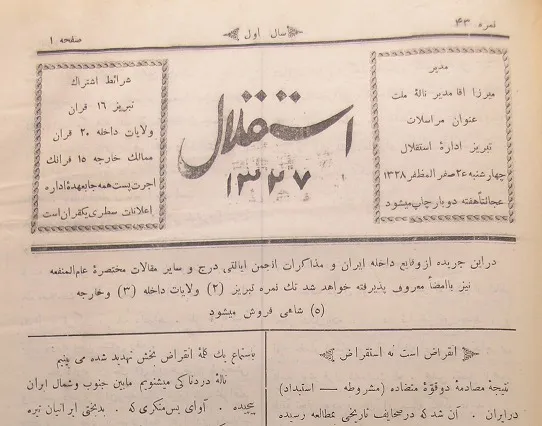 نمره ۴۳
سال اول
صفحه ۱
مدیر
میرزا اقا مدیر نالهٔ ملت
عنوان مراسلات
تبریز ادارهٔ استقلال
چهارشنبه ۲۶ صفر المظفر ۱۳۲۸
عجالتاً هفته دو بار چاپ میشود
استقلال
۱۳۲۷
شرائط اشتراك
تبریز ۱۶ قران
ولایات داخله ۲۰ قران
ممالك خارجه ۱۵ فرانك
اجرت پست همه جا بعهدهٔ اداره
اعلانات سطری یکقران است
در این جریده از وقایع داخله ایران و مذاکرات انجمن ایالتی درج و سایر مقالات مختصرهٔ عام‌المنفعه
نیز باامضأ معروف پذیرفته خواهد شد تك نمره تبریز (۲) ولایات داخله (۳) وخارجه
(۵) شاهی فروش میشود
انقراض است نه استقراض
نتیجهٔ مصادمهٔ دوقوّهٔ متضاده (مشروطه — استبداد)
درایران . آن شد که درصحایف تاریخی مطالعه رسیده
باستماع یك کلهٔ انقراض بخش تهدید شده می بینیم
نالهٔ دردناکی میشنویم مابین جنوب وشمال ایران
پیچیده . آوای بس‌منکری که . بدبختی ایرانیان تیره